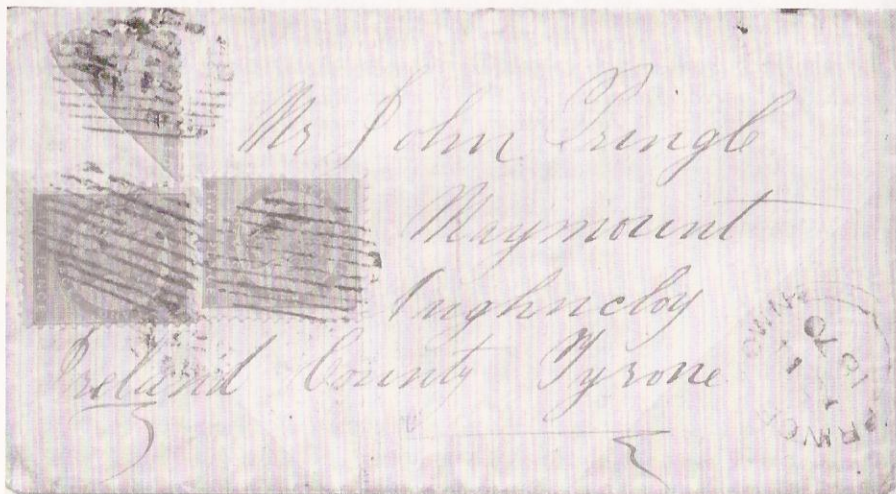 Mr John Pringle
Maymount
Aughncloy
Ireland County Tyrone
1870